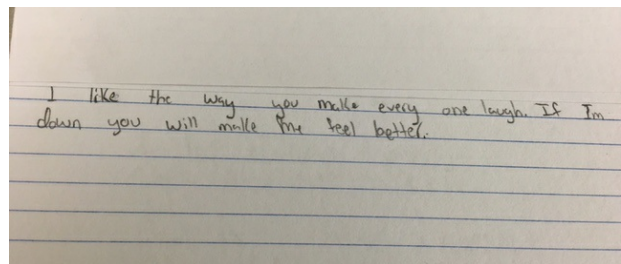 I like the way you make every one laugh. If Im
down you will make me feel better.